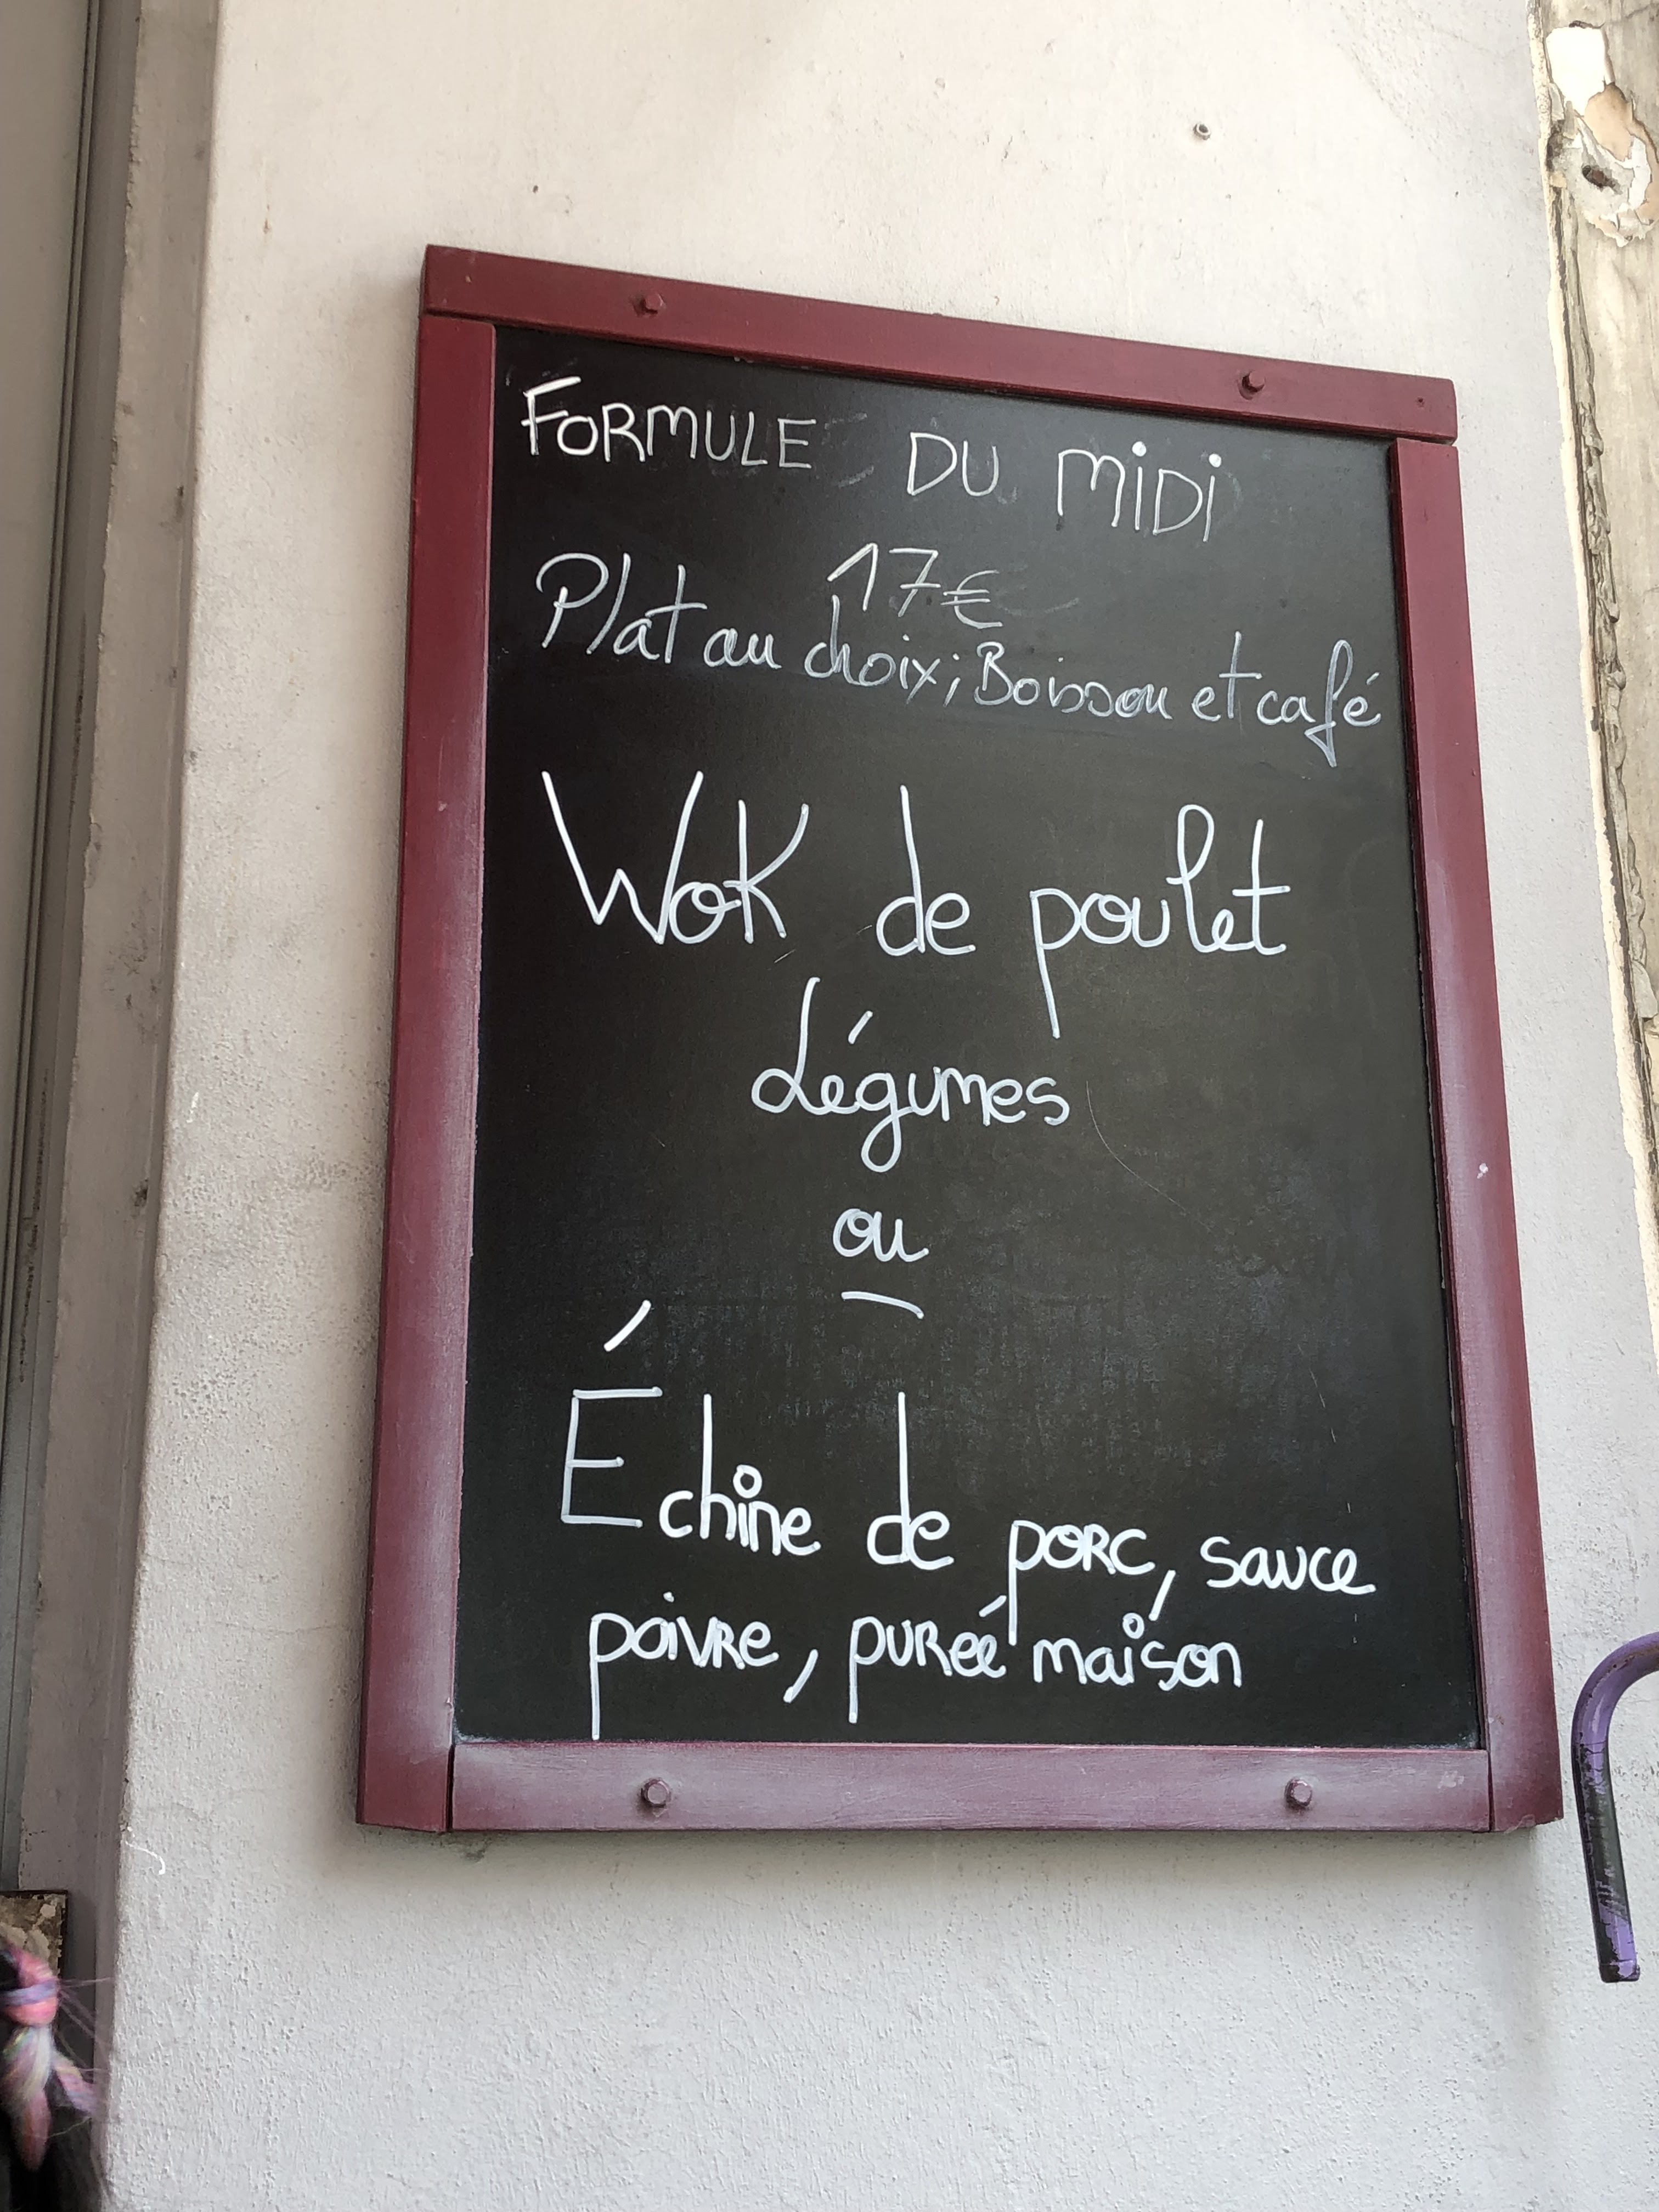 FORMULE DU MIDI
17€
Plat au choix; Boisson et café
Wok de poulet
Légumes
ou
Échine de porc, sauce
poivre, pureé maison